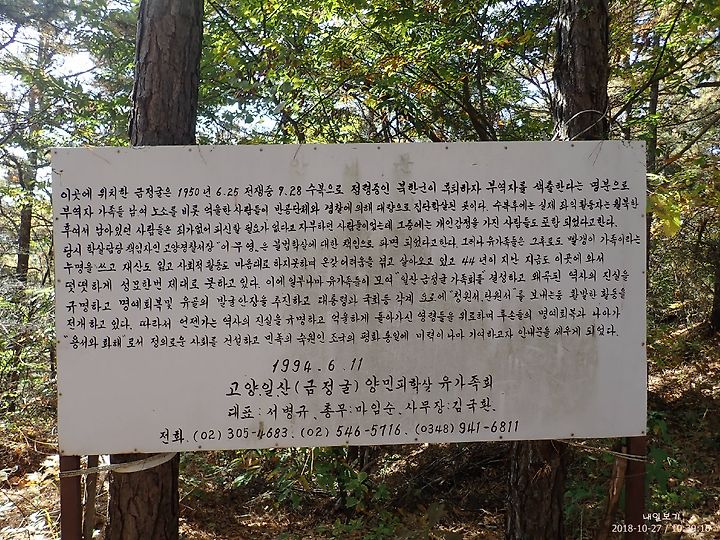 안내문
이곳에 위치한 금정굴은 1950년 6.25 전쟁중 9.28 수복으로 점령중인 북한군이 퇴하자 부역자를 색출한다는 명분으로
부역자 가족을 남여 노소를 비롯 억울한 사람들이 반공단체와 경찰에 의해 대량으로 집단학살된 곳이다. 수복후에는 실제 좌익활동자는 월북한
후여서 남아있던 사람들은 죄가없어 피신할 필요가 없다고 자부하던 사람들이었는데 그중에는 개인감정을 가진 사람들도 포함 되었다고한다.
당시 학살담당 책임자인 고양경찰서장 "이무영"은 불법학살에 대한 책임으로 파면 되었다고한다. 그러나 유가족들은 그후로도 빨갱이 가족이라는
누명을 쓰고 재산도 잃고 사회적 활동도 마음대로 하지못하며 온갖 어려움을 겪고 살아오고 있고 44년이 지난 지금도 이곳에 와서
떳떳하게 성묘한번 제대로 못하고 있다. 이에 일부나마 유가족들이 모여 "일산 금정굴 가족회"를 결성하고 왜곡된 역사의 진실을
규명하고 명예회복 및 유골의 발굴안장을 추진하고 대통령과 국회등 각계 요로에 "청원서,탄원서"를 보내는등 활발한 활동을
전개하고 있다. 따라서 언젠가는 역사의 진실을 규명하고 억울하게 돌아가신 영령들을 위로하며 후손들의 명예회복과 나아가
"용서와 화해"로서 정의로운 사회를 건설하고 민족의 숙원인 조국의 평화통일에 미력이나마 기여하고자 안내문을 세우게 되었다.
1994. 6. 11
고양일산(금정굴) 양민피학살 유가족회
대표:서병규. 총무:마임순. 사무장:김국환.
전화. (02) 305-4683. (02) 546-5716. (0348) 941-6811
내일보기
2018-10-27 / 10:29:16